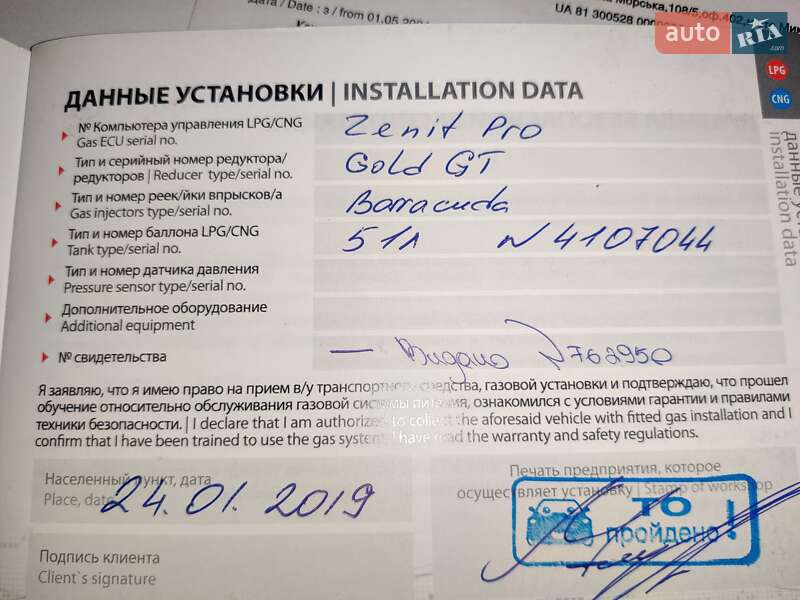 Дата / Date : з / from 01.05.
Морська,108/5,оф.402
UA 81 300528
auto RIA .com
LPG
CNG
ДАННЫЕ УСТАНОВКИ | INSTALLATION DATA
№ Компьютера управления LPG/CNG
Gas ECU serial no.
Zenit Pro
Тип и серийный номер редуктора/
редукторов | Reducer type/serial no.
Gold GT
Тип и номер реек/йки впрысков/а
Gas injectors type/serial no.
Barracuda
Тип и номер баллона LPG/CNG
Tank type/serial no.
51л N 4107044
Тип и номер датчика давления
Pressure sensor type/serial no.
Дополнительное оборудование
Additional equipment
№ свидетельства
— Видано N762950
Я заявляю, что я имею право на прием в/у транспортного средства, газовой установки и подтверждаю, что прошел
обучение относительно обслуживания газовой системы питания, ознакомился с условиями гарантии и правилами
техники безопасности. | I declare that I am authorized to collect the aforesaid vehicle with fitted gas installation and I
confirm that I have been trained to use the gas system, I have read the warranty and safety regulations.
Населенный пункт, дата
Place, date
24.01.2019
Печать предприятия, которое
осуществляет установку | Stamp of workshop
ТО
пройдено!
Подпись клиента
Client`s signature
installation data